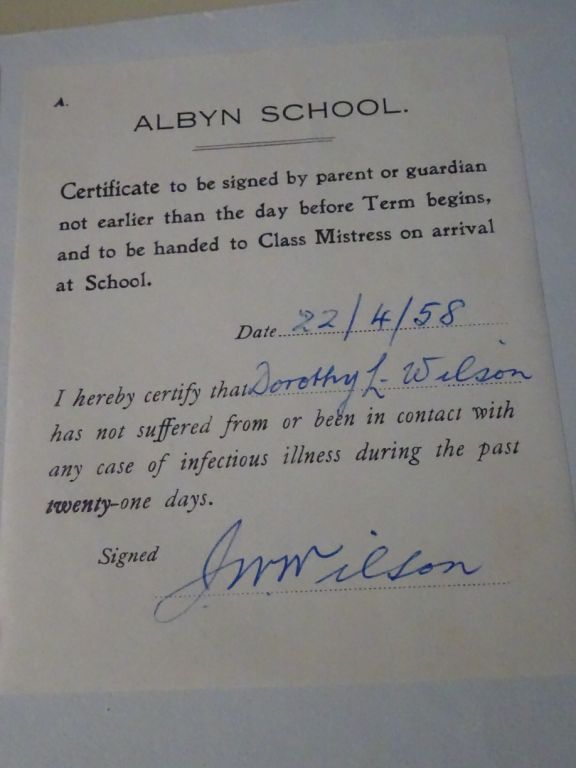 A.
ALBYN SCHOOL.
Certificate to be signed by parent or guardian
not earlier than the day before Term begins,
and to be handed to Class Mistress on arrival
at School.
Date 22/4/58
I hereby certify that Dorothy L. Wilson
has not suffered from or been in contact with
any case of infectious illness during the past
twenty-one days.
Signed J.W. Wilson